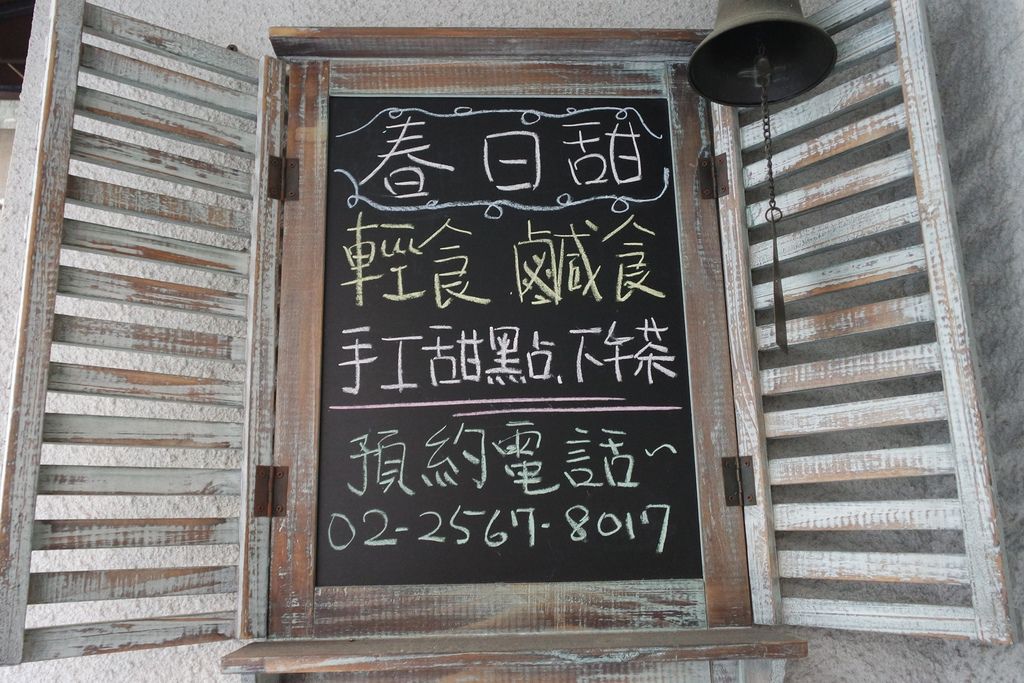 春日甜
輕食 鹹食
手工甜點、下午茶
預約電話~
02-2567-8017